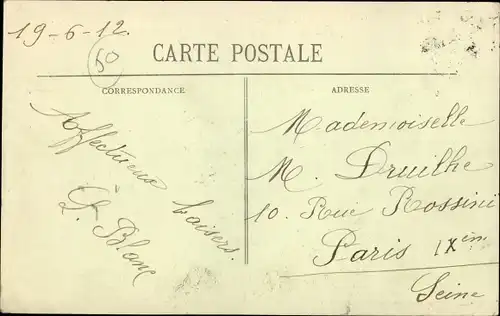 19-6-12.
50
CARTE POSTALE
CORRESPONDANCE
ADRESSE
Affectueux baisers.
L. Blanc
Mademoiselle
M. Druilhe
10. Rue Rossini
Paris IXem
Seine